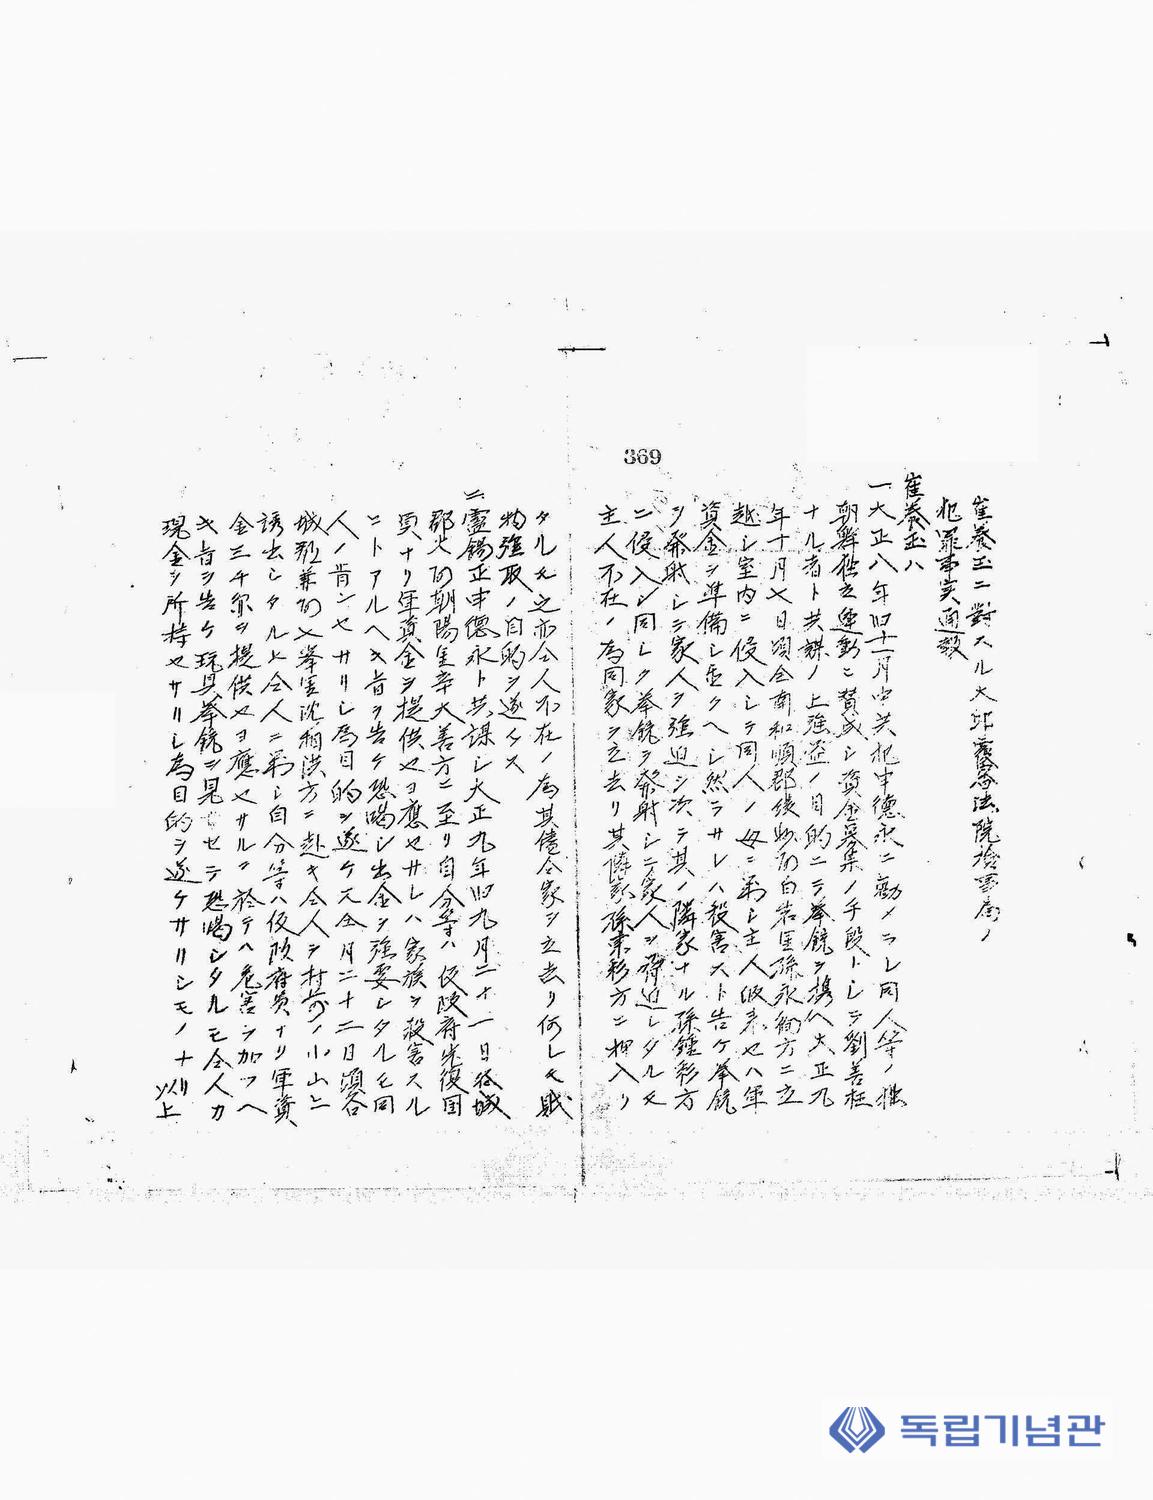 369
崔養玉ニ對スル大邱覆審法院検事局ノ
犯罪事実通報
崔養玉ハ
一大正八年旧十一月中共犯申德永ニ勧メラレ同人等ノ
朝鮮独立運動ニ賛成シ資金募集ノ手段トシテ劉善柱
ナル者ト共謀ノ上強盗ノ目的ニテ拳銃ヲ携ヘ大正九
年十月七日頃全南和順郡綾州面白岩里孫永徇方ニ立
越シ室内ニ侵入シテ同人ノ母ニ対シ主人帰来セハ軍
資金ヲ準備シ置クヘシ然ラサレハ殺害スト告ケ拳銃
ヲ発射シテ家人ヲ強迫シ次テ其ノ隣家ナル孫鍾彩方
ニ侵入シ同シク拳銃ヲ発射シテ家人ヲ脅迫シタルモ
主人不在ノ為同家ヲ立去リ其隣家孫東彩方ニ押入リ
タルモ之亦仝人不在ノ為其儘仝家ヲ立去リ何レモ財
物強取ノ目的ヲ遂ケス
二、盧錫正申德永ト共謀シ大正九年旧九月二十一日谷城
郡火面朝陽里辛大善方ニ至リ自分等ハ仮政府光復団
員ナリ軍資金ヲ提供セヨ應セサレハ家族ヲ殺害スル
コトアルヘキ旨ヲ告ケ恐喝シ出金ヲ強要シタルモ同
人ノ肯ンセサリシ為目的ヲ遂ケス仝月二十二日頃谷
城郡兼面七峯里沈相洪方ニ赴キ仝人ヲ村前ノ小山ニ
誘出シタル上仝人ニ対シ自分等ハ仮政府員ナリ軍資
金三千円ヲ提供セヨ應セサルニ於テハ危害ヲ加フヘ
キ旨ヲ告ケ玩具拳銃ヲ見セテ恐喝シタルモ仝人カ
現金ヲ所持セサリシ為目的ヲ遂ケサリシモノナリ
以上
독립기념관